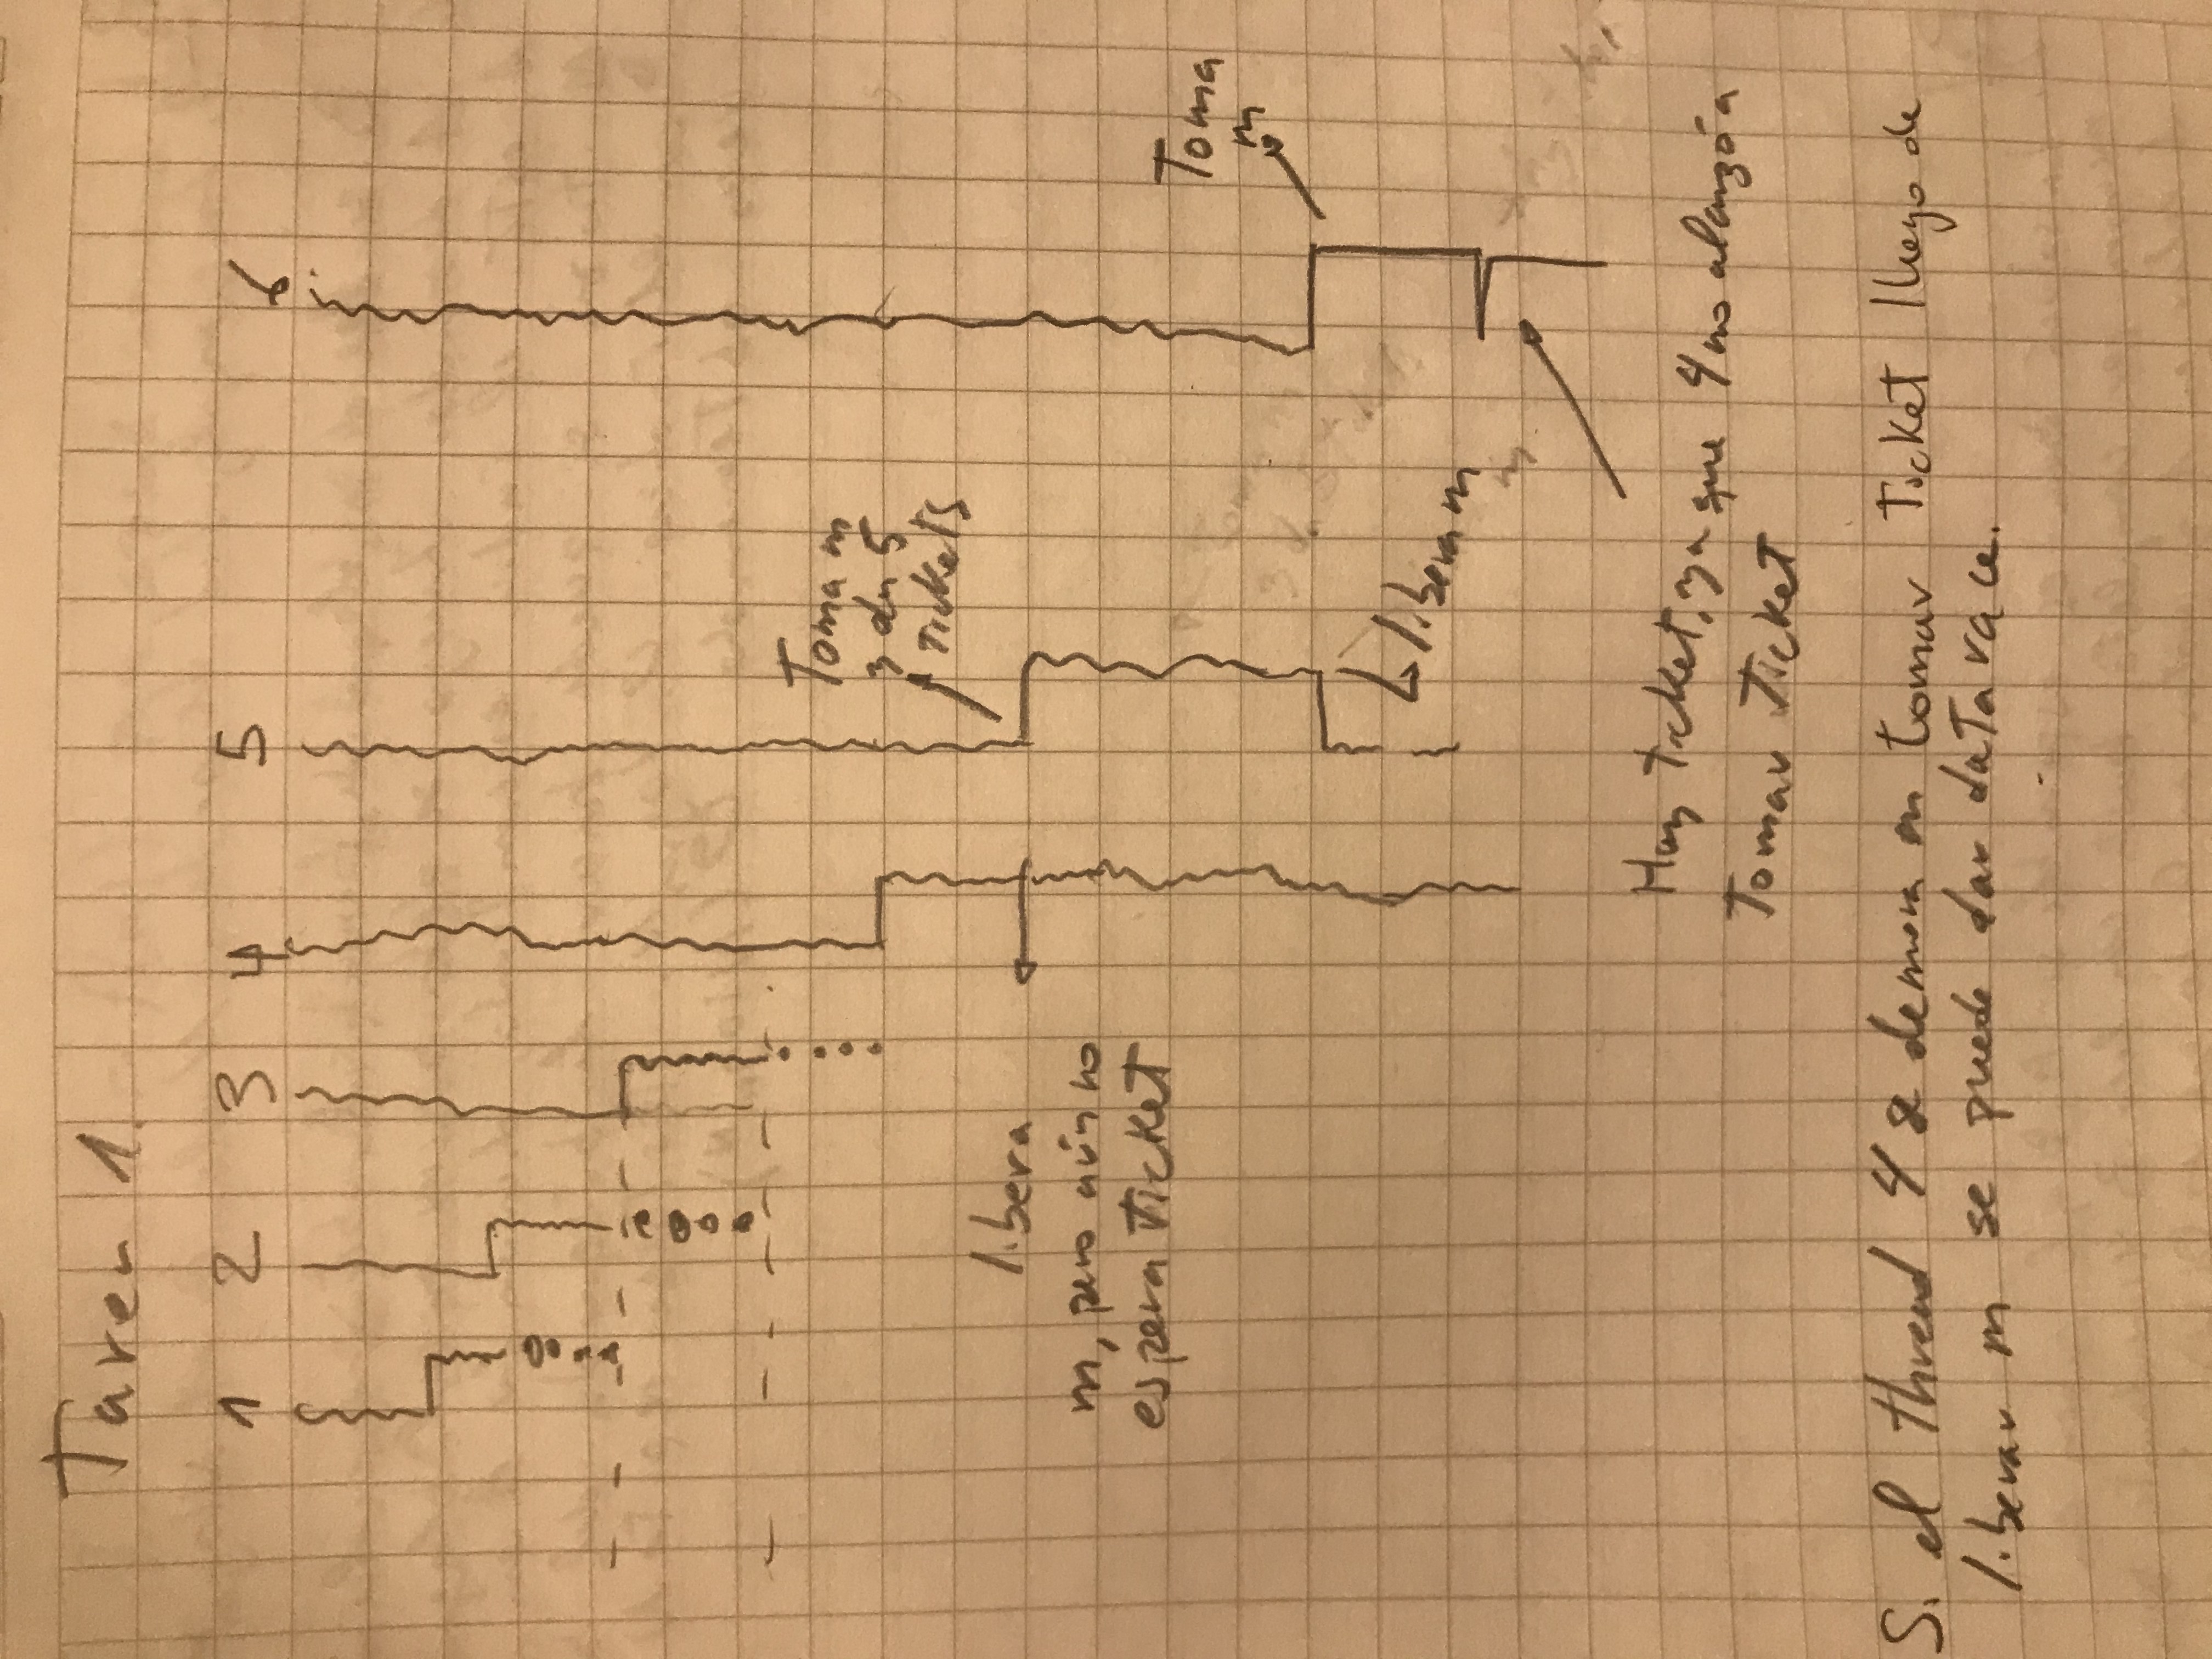 Tarea 1.
1 2 3 4 5 6
Toma m
y da 5
tickets
libera
m, pero aún no
espera ticket
Toma
m
libera m
Hay ticket, ya que 4 no alanzó a
Tomar Ticket
Si el thread 4 se demora en tomar Ticket luego de
liberar m se puede dar data race.